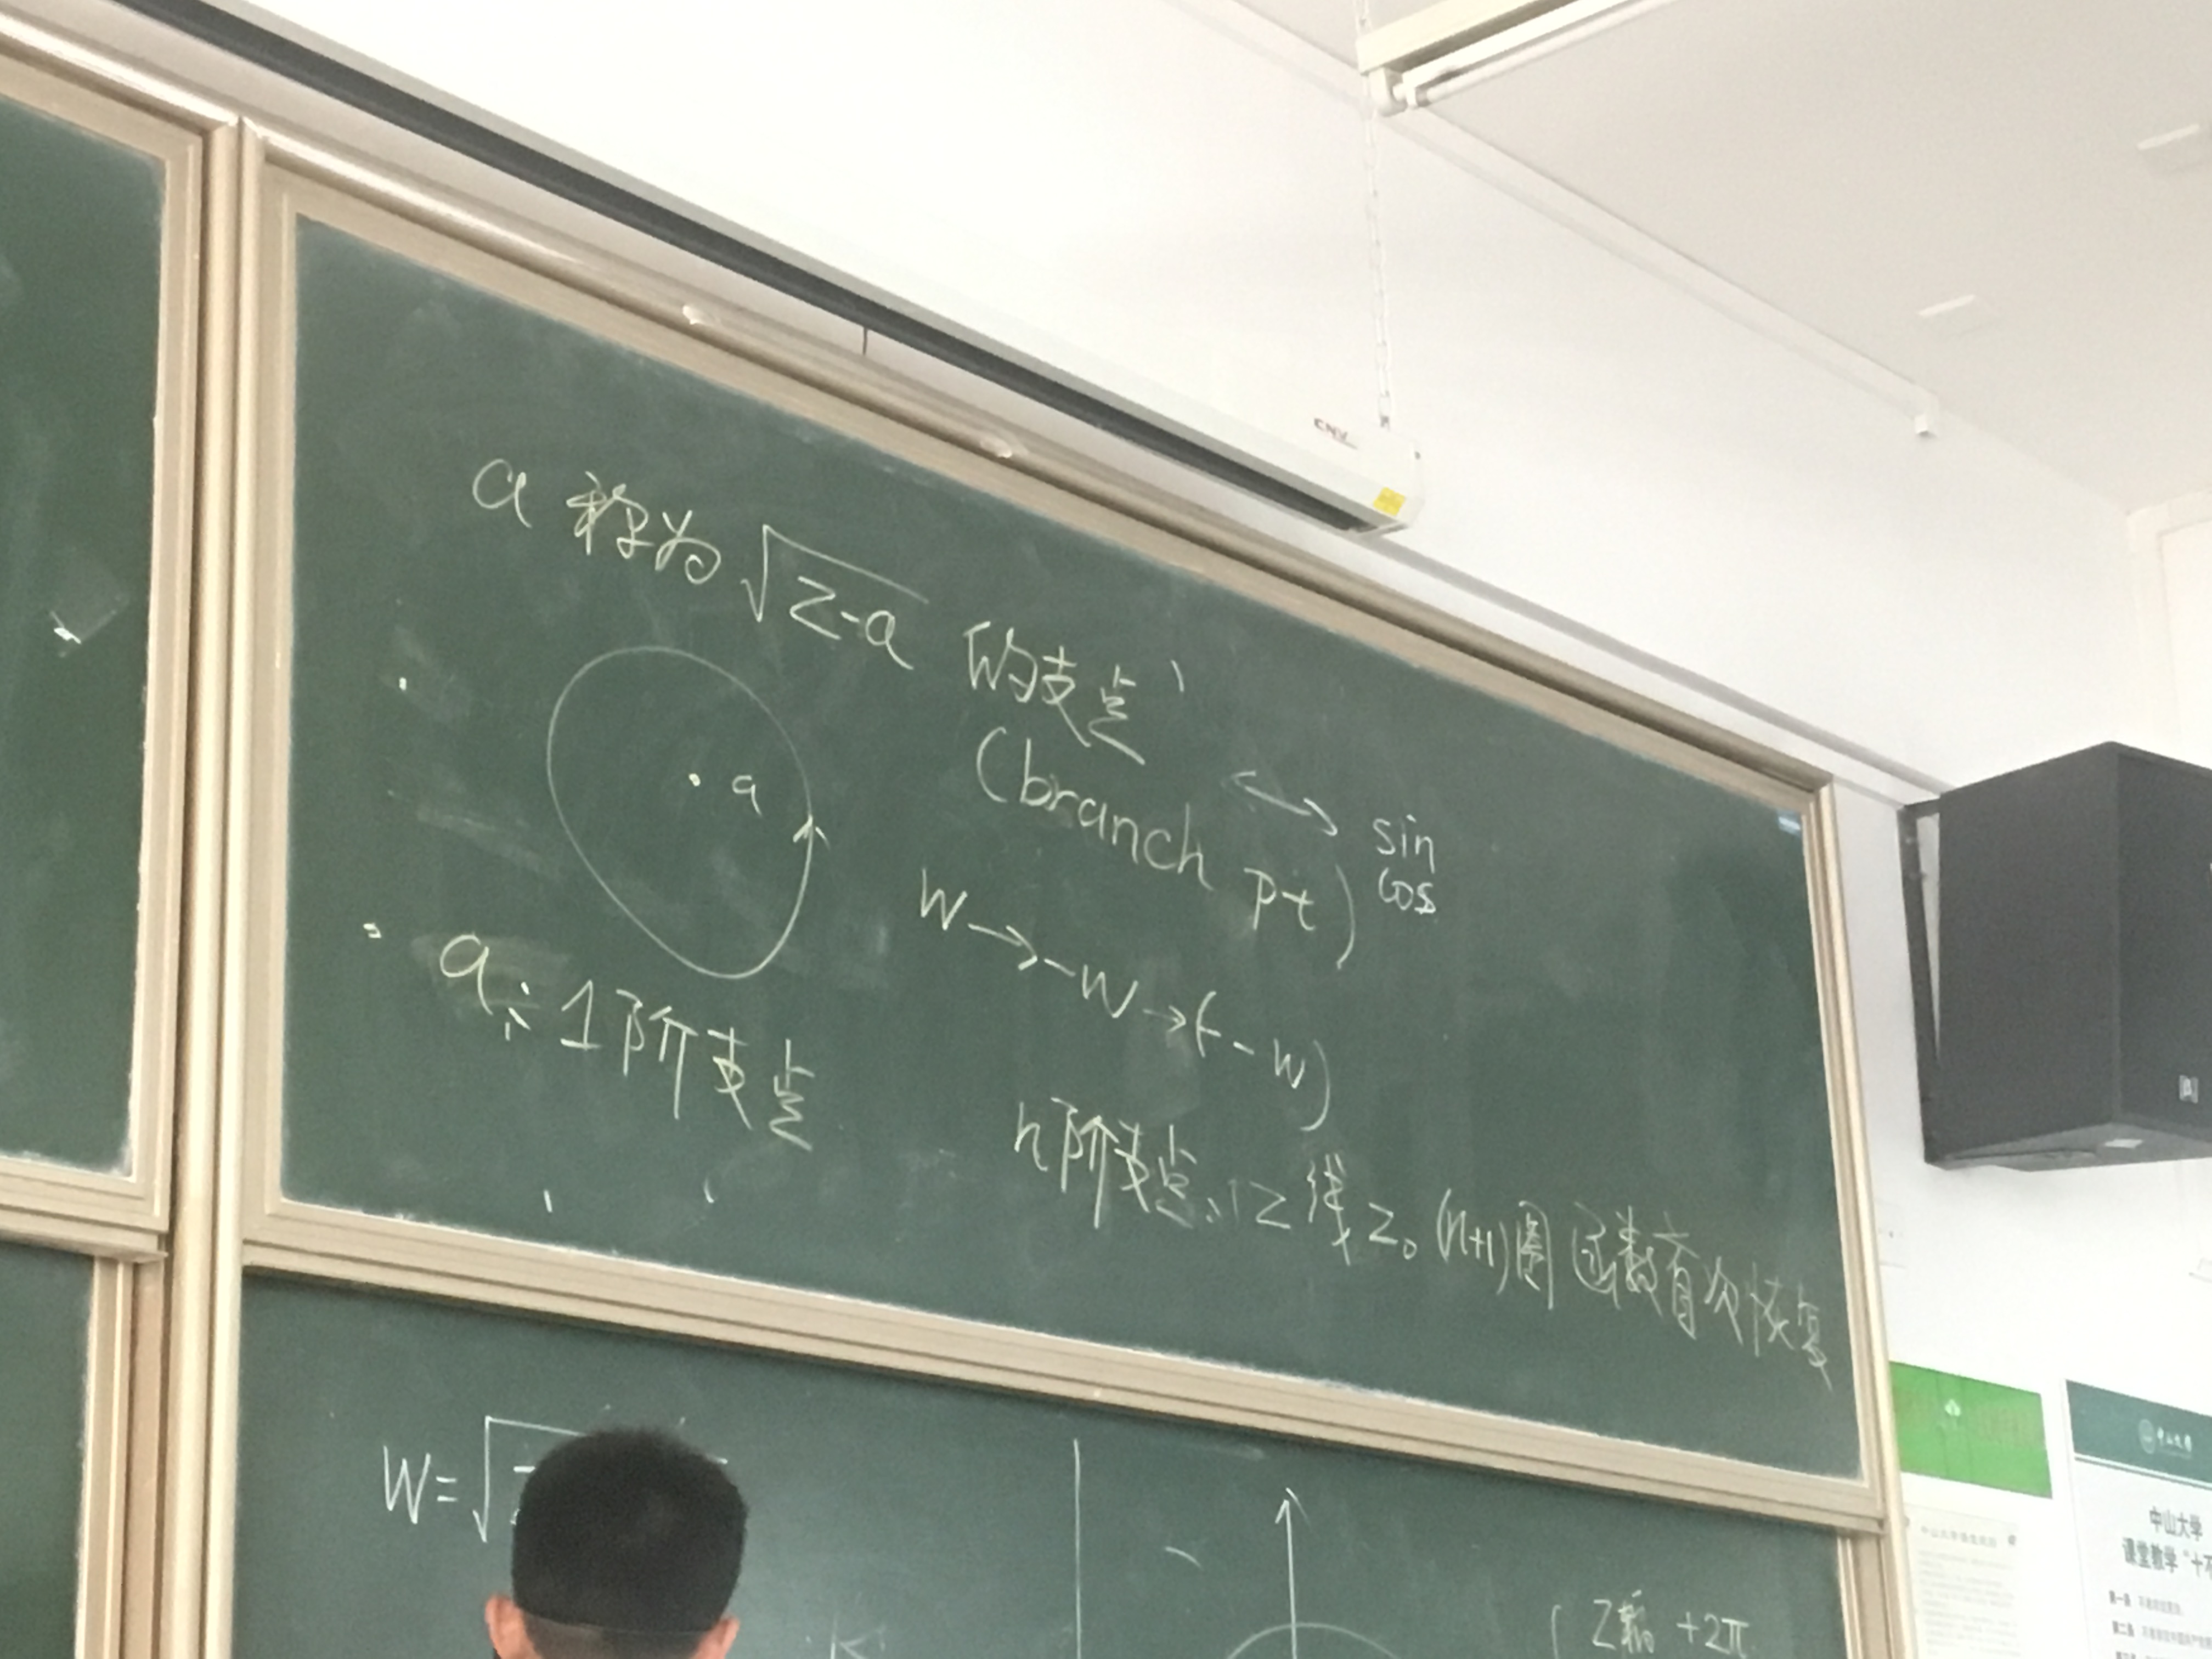 a 称为 √z-a 的支点
(branch pt)
sin
cos
a
W→-W→(-W)
a: 1阶支点
n阶支点, z 绕 z₀ (n+1)圈 函数首次恢复
W=√
z +2π
CNV
中山大学
中山大学
课堂教学"十不